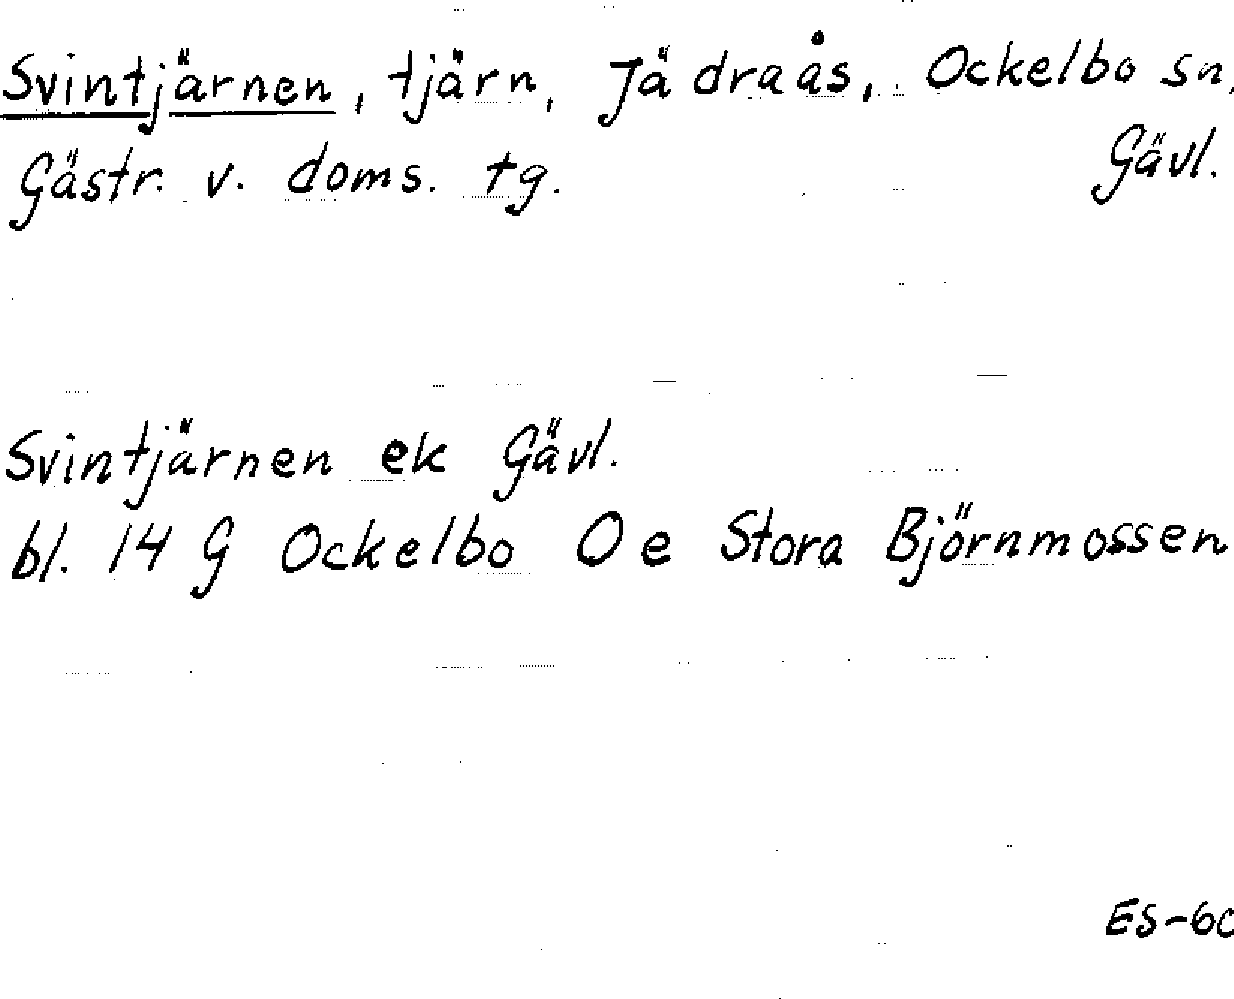 Svintjärnen, tjärn, Jädraås, Ockelbo sn,
Gästr. v. doms. tg. Gävl.
Svintjärnen ek Gävl.
bl. 14 G Ockelbo O e Stora Björnmossen